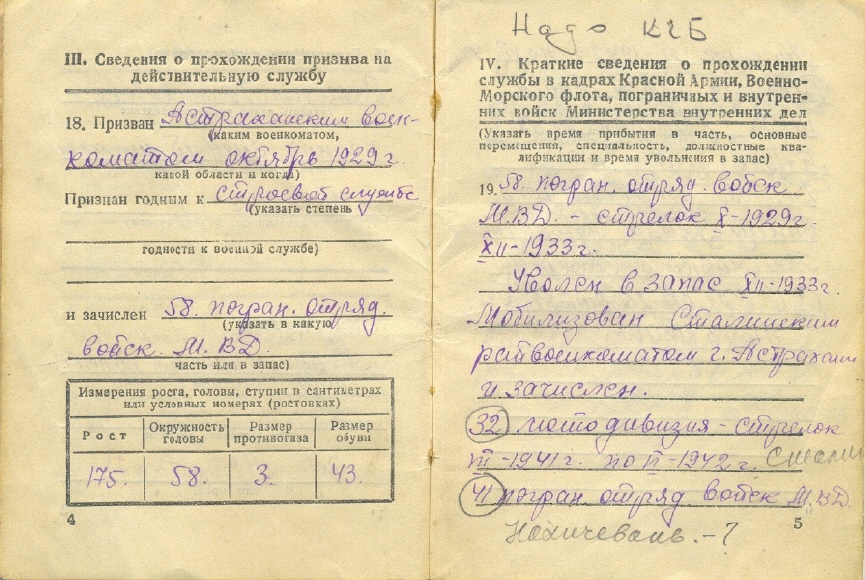 III. Сведения о прохождении призыва на
действительную службу
18. Призван Астраханским воен-
(каким военкоматом,
коматом октябрь 1929 г.
какой области и когда)
Признан годным к строевой службе
(указать степень
годности к военной службе)
и зачислен 58. погран. отряд.
(указать в какую
войск. М.В.Д.
часть или в запас)
Измерения роста, головы, ступни в сантиметрах
или условных номерах (ростовках)
Рост Окружность головы Размер противогаза Размер обуви
175. 58. 3. 43.
4
Надо КГБ
IV. Краткие сведения о прохождении
службы в кадрах Красной Армии, Военно-
Морского флота, пограничных и внутрен-
них войск Министерства внутренних дел
(Указать время прибытия в часть, основные
перемещения, специальность, должностные ква-
лификации и время увольнения в запас)
19. 58. погран. отряд. войск
М.В.Д. - стрелок X-1929г.
XII-1933г.
Уволен в запас XII-1933г.
Мобилизован Сталинским
райвоенкоматом г. Астрахани
и зачислен.
32 мотодивизия - стрелок
-1941г. по -1942г.
41 погран. отряд войск М.В.Д.
Нахичевань. - ?
5